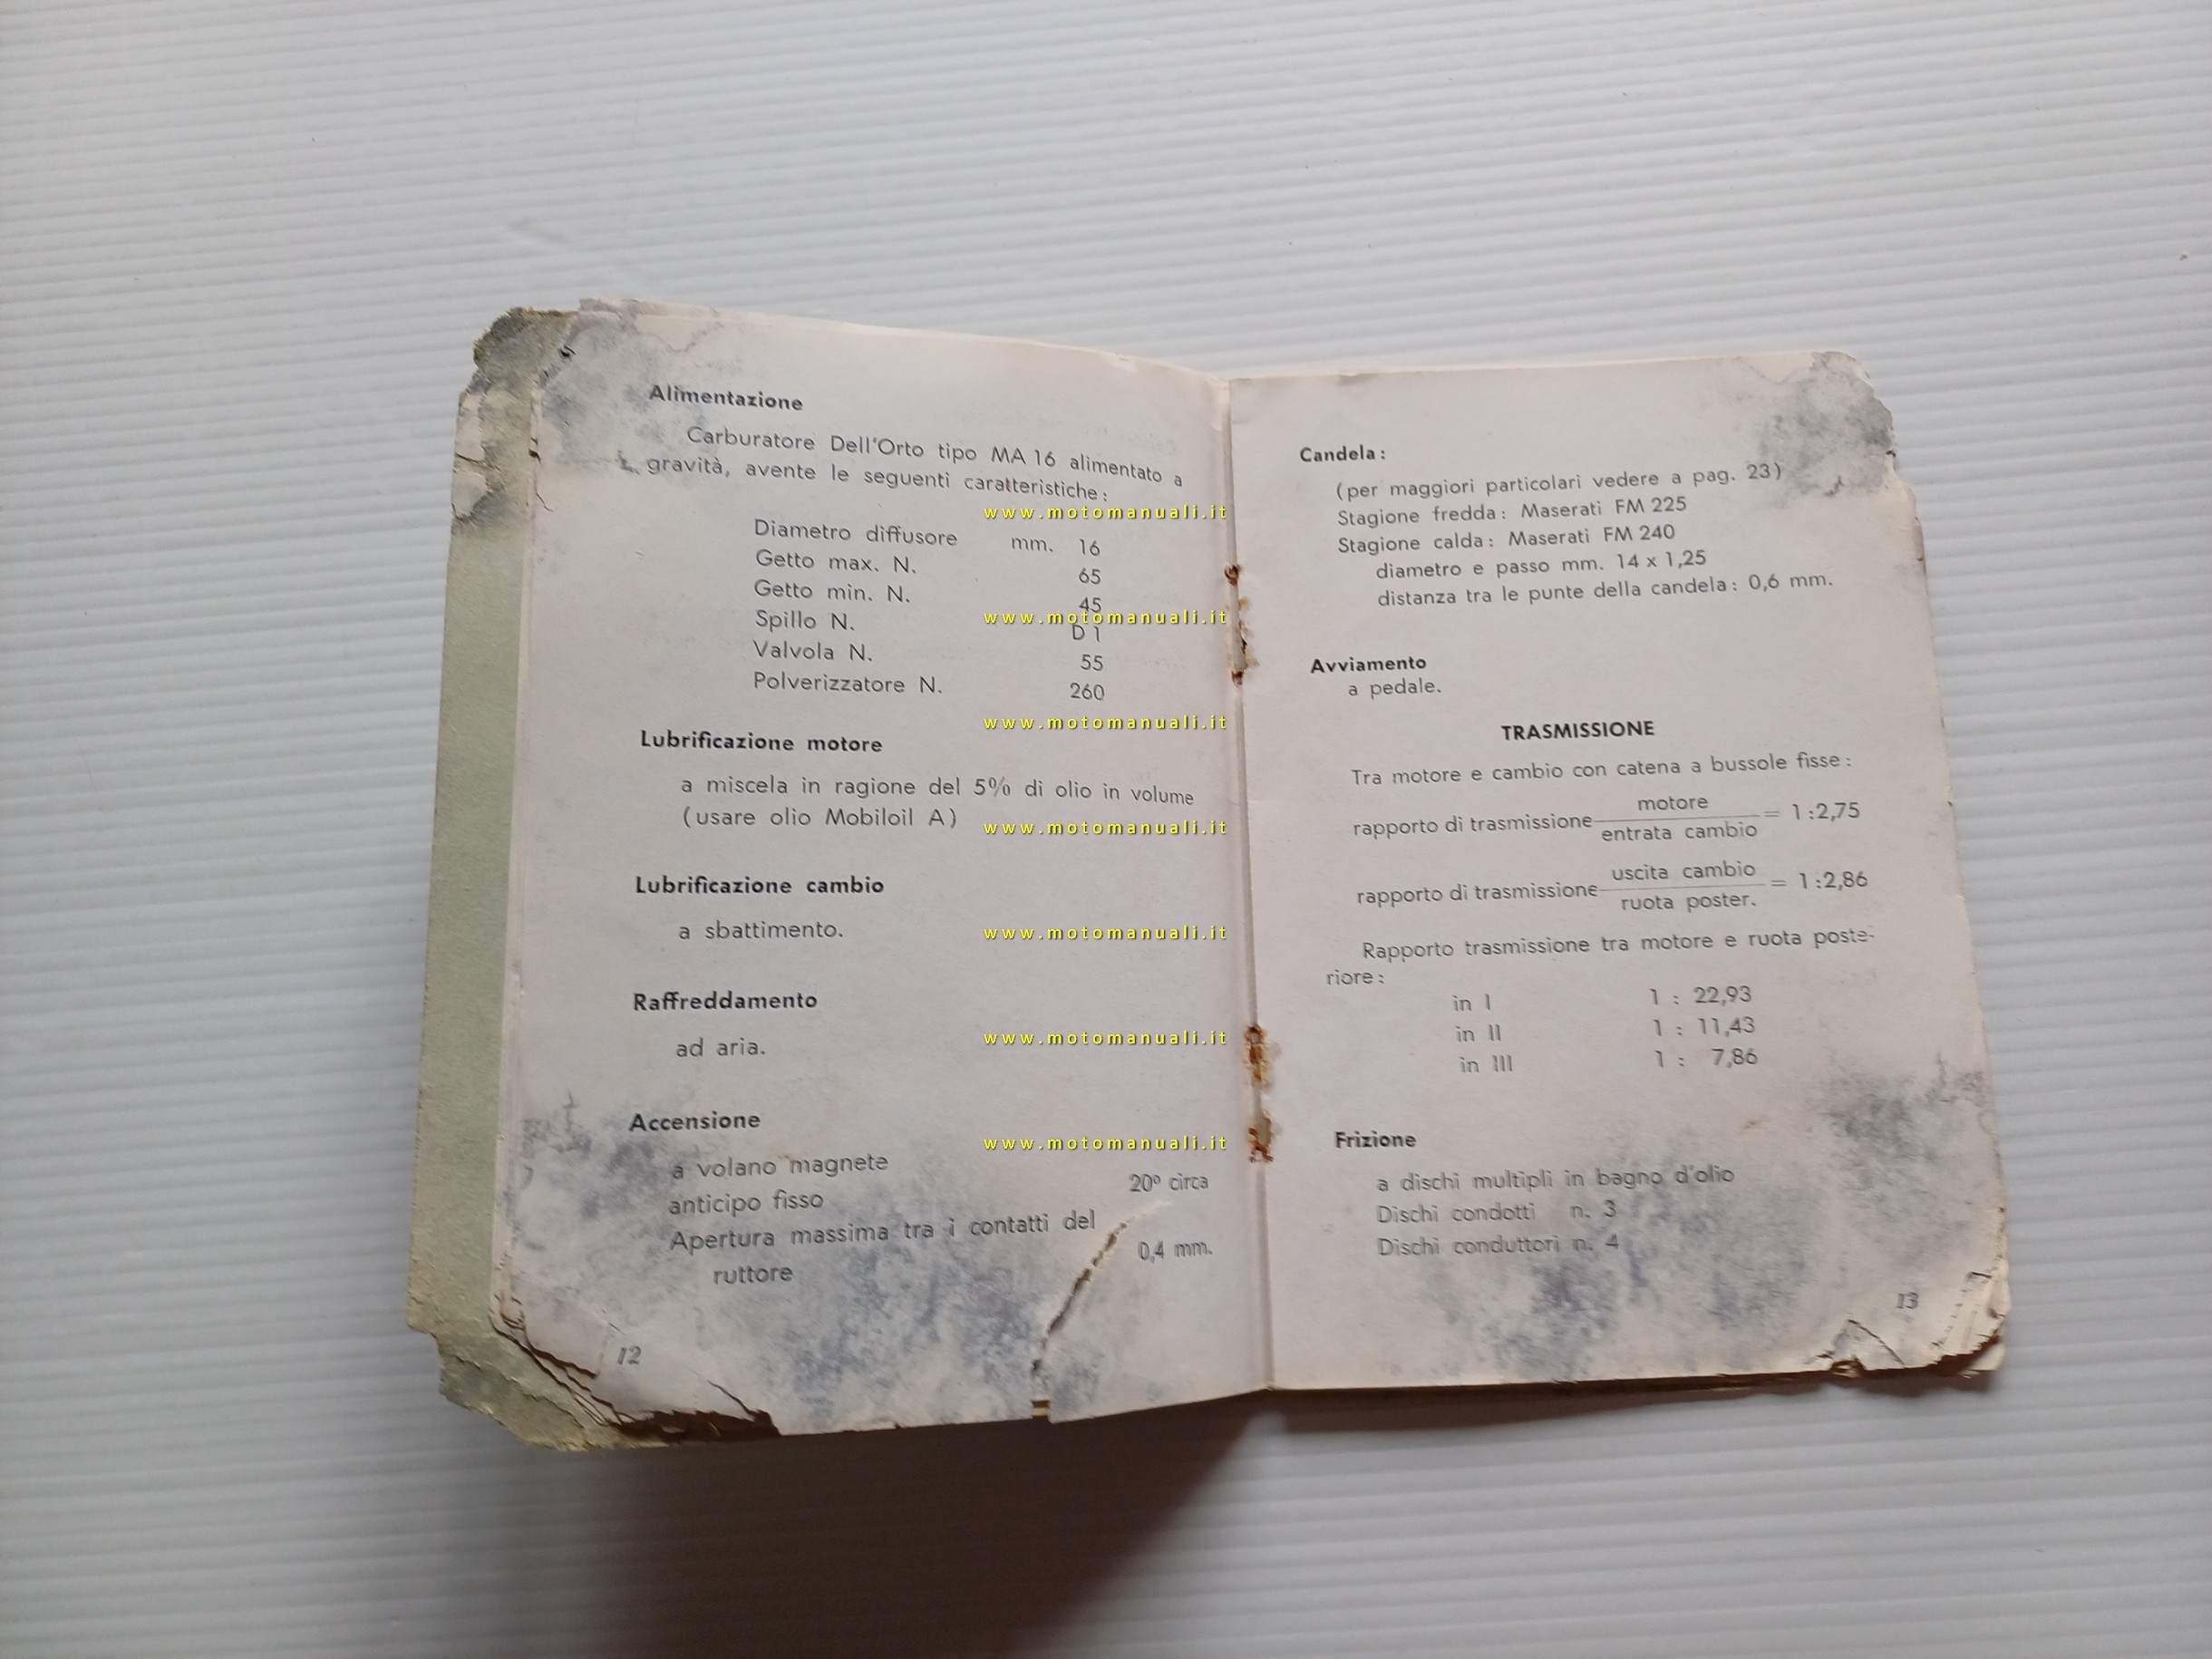 Alimentazione
Carburatore Dell'Orto tipo MA 16 alimentato a
gravità, avente le seguenti caratteristiche :
www.motomanuali.it
Diametro diffusore mm. 16
Getto max. N. 65
Getto min. N. 45
www.motomanuali.it
Spillo N. D 1
Valvola N. 55
Polverizzatore N. 260
www.motomanuali.it
Lubrificazione motore
a miscela in ragione del 5% di olio in volume
(usare olio Mobiloil A)
www.motomanuali.it
Lubrificazione cambio
a sbattimento.
www.motomanuali.it
Raffreddamento
ad aria.
www.motomanuali.it
Accensione
www.motomanuali.it
a volano magnete
anticipo fisso 20º circa
Apertura massima tra i contatti del
ruttore 0,4 mm.
12
Candela :
(per maggiori particolari vedere a pag. 23)
Stagione fredda : Maserati FM 225
Stagione calda : Maserati FM 240
diametro e passo mm. 14 x 1,25
distanza tra le punte della candela : 0,6 mm.
Avviamento
a pedale.
TRASMISSIONE
Tra motore e cambio con catena a bussole fisse :
motore
rapporto di trasmissione = 1 :2,75
entrata cambio
uscita cambio
rapporto di trasmissione = 1 :2,86
ruota poster.
Rapporto trasmissione tra motore e ruota poste-
riore :
in I 1 : 22,93
in II 1 : 11,43
in III 1 : 7,86
Frizione
a dischi multipli in bagno d'olio
Dischi condotti n. 3
Dischi conduttori n. 4
13